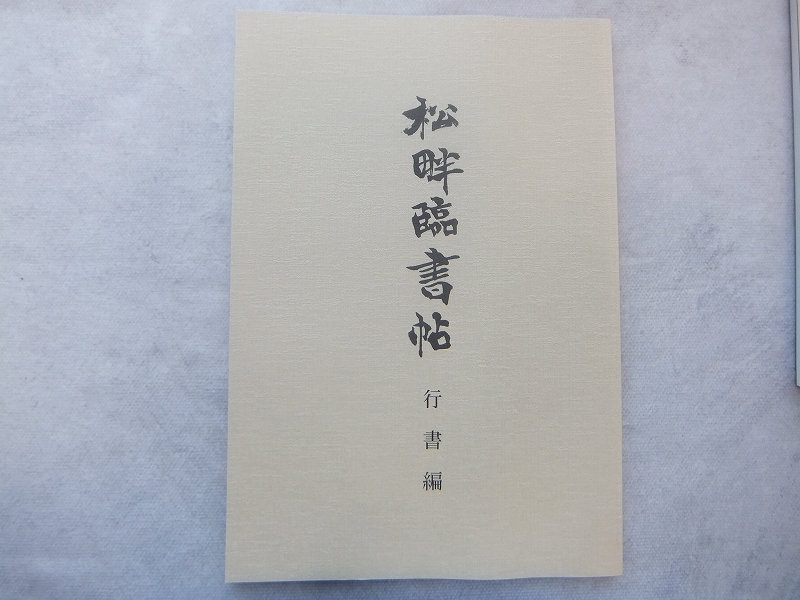 松畔臨書帖
行書編